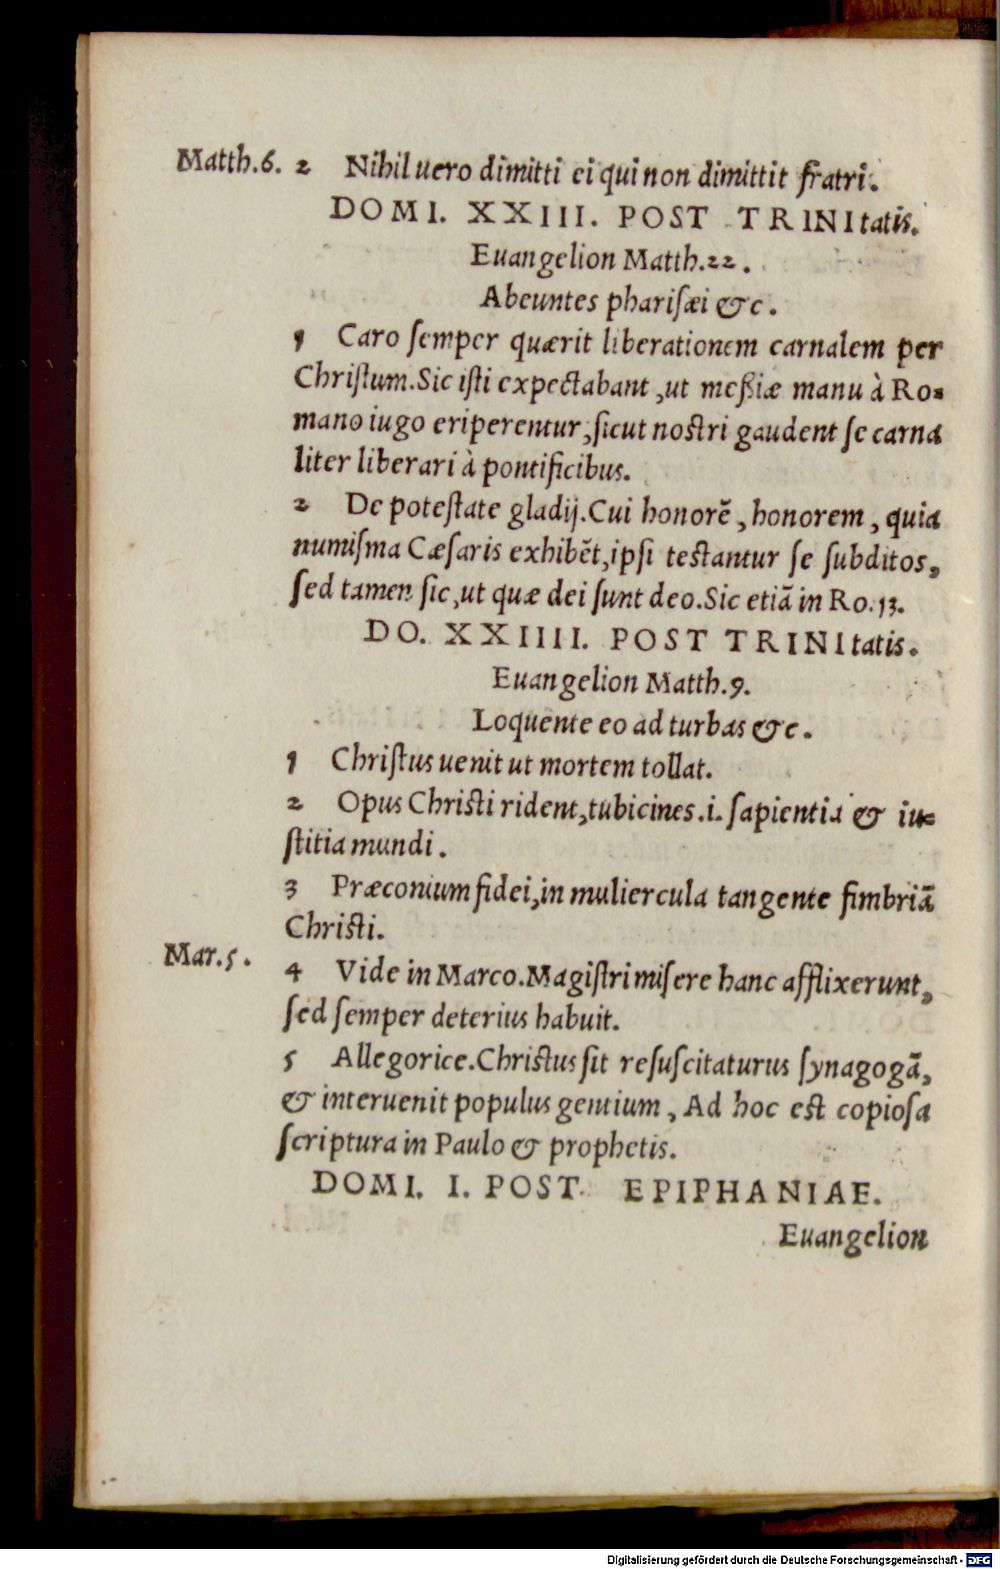 Matth.6. 2 Nihil uero dimitti ei qui non dimittit fratri.
DOMI. XXIII. POST TRINItatis.
Euangelion Matth.22.
Abeuntes phariſæi &c.
1 Caro ſemper quærit liberationem carnalem per
Chriſtum. Sic iſti expectabant, ut meſsiæ manu à Ro-
mano iugo eriperentur, ſicut noſtri gaudent ſe carna
liter liberari à pontificibus.
2 De poteſtate gladij. Cui honorē, honorem, quia
numiſma Cæſaris exhibēt, ipſi teſtantur ſe ſubditos,
ſed tamen ſic, ut quæ dei ſunt deo. Sic etiā in Ro.13.
DO. XXIIII. POST TRINItatis.
Euangelion Matth.9.
Loquente eo ad turbas &c.
1 Chriſtus uenit ut mortem tollat.
2 Opus Chriſti rident, tubicines .i. ſapientia & iu-
ſtitia mundi.
3 Præconium fidei, in muliercula tangente fimbriā
Chriſti.
Mar.5.
4 Vide in Marco. Magiſtri miſere hanc afflixerunt,
ſed ſemper deterius habuit.
5 Allegorice. Chriſtus ſit reſuſcitaturus ſynagogā,
& interuenit populus gentium, Ad hoc eſt copioſa
ſcriptura in Paulo & prophetis.
DOMI. I. POST EPIPHANIAE.
Euangelion
Digitalisierung gefördert durch die Deutsche Forschungsgemeinschaft - DFG